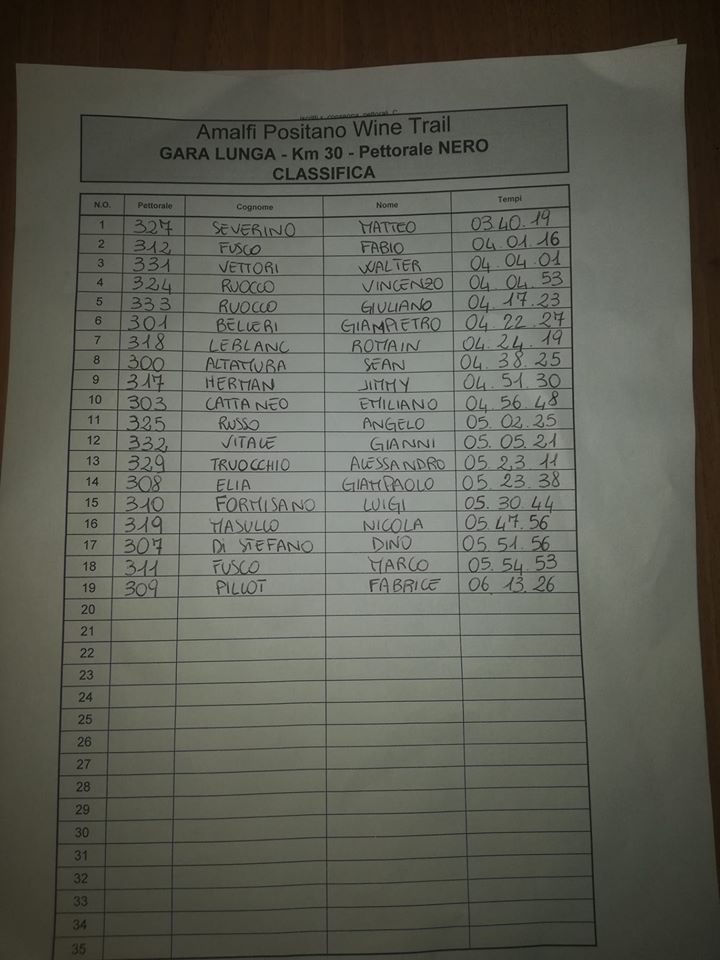 Amalfi Positano Wine Trail
GARA LUNGA - Km 30 - Pettorale NERO
CLASSIFICA
N.O. Pettorale Cognome Nome Tempi
1 327 SEVERINO MATTEO 03.40.19
2 312 FUSCO FABIO 04.01.16
3 331 VETTORI WALTER 04.04.01
4 324 RUOCCO VINCENZO 04.04.53
5 333 RUOCCO GIULIANO 04.17.23
6 301 BELLERI GIAMPIETRO 04.22.27
7 318 LEBLANC ROMAIN 04.24.19
8 300 ALTAMURA SEAN 04.38.25
9 317 HERMAN JIMMY 04.51.30
10 303 CATTANEO EMILIANO 04.56.48
11 325 RUSSO ANGELO 05.02.25
12 332 VITALE GIANNI 05.05.21
13 329 TRUOCCHIO ALESSANDRO 05.23.11
14 308 ELIA GIAMPAOLO 05.23.38
15 310 FORMISANO LUIGI 05.30.44
16 319 MASULLO NICOLA 05.47.56
17 307 Di STEFANO DINO 05.51.56
18 311 FUSCO MARCO 05.54.53
19 309 PILLOT FABRICE 06.13.26
20
21
22
23
24
25
26
27
28
29
30
31
32
33
34
35